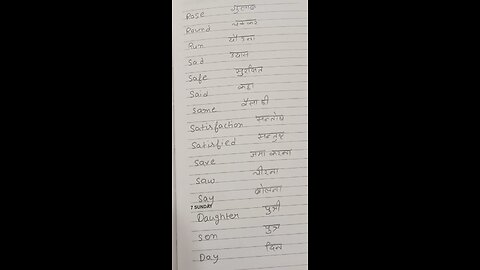 Rose गुलाब
Round चक्कर
Run दौडना
Sad उदास
Safe सुरक्षित
Said कहा
Same वैसा ही
Satisfaction सन्तोष
Satisfied सन्तुष्ट
Save जमा करना
Saw चीरना
Say बोलना
7 SUNDAY
Daughter पुत्री
Son पुत्र
Day दिन